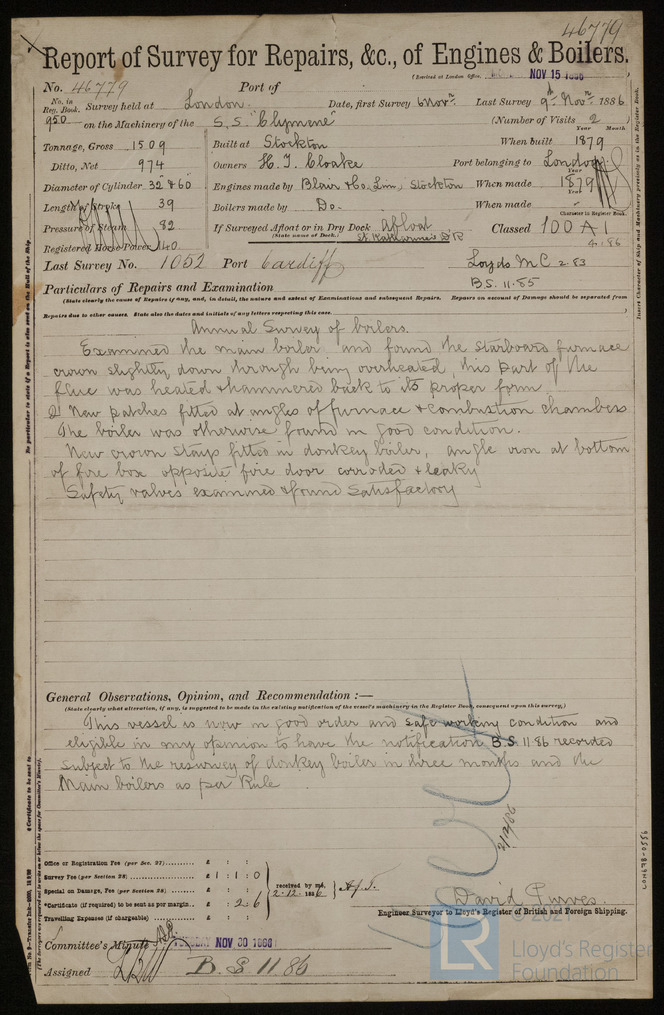 46779
Report of Survey for Repairs, &c., of Engines & Boilers.
(Received at London Office, NOV 15 1886
No. 46779 Port of
No. in Reg. Book. Survey held at London. Date, first Survey 6 Novr Last Survey 9th Novr 1886
950 on the Machinery of the S.S. "Clymene" (Number of Visits 2)
Year Month
Tonnage, Gross 1509 Built at Stockton When built 1879
Ditto, Net 974 Owners H. T. Cloake Port belonging to London
Diameter of Cylinder 32 & 60 Engines made by Blair & Co. Lim, Stockton When made 1879
Length of Stroke 39 Boilers made by Do. When made -
Pressure of Steam 82 If Surveyed Afloat or in Dry Dock Afloat Classed 100 A1
(State name of Dock.) St Katharine's D'k
Character in Register Book.
4.86
Registered Horse Power 140
Last Survey No. 1052 Port Cardiff Loyds M C 2.83
B.S. 11.85
Particulars of Repairs and Examination
(State clearly the cause of Repairs if any, and, in detail, the nature and extent of Examinations and subsequent Repairs. Repairs on account of Damage should be separated from
Repairs due to other causes. State also the dates and initials of any letters respecting this case.)
Annual Survey of boilers.
Examined the main boiler and found the starboard furnace
crown slightly down through being overheated, this part of the
flue was heated & hammered back to its proper form
2 New patches fitted at angles of furnace & combustion chambers
The boiler was otherwise found in good condition.
New crown stays fitted in donkey boiler, angle iron at bottom
of fire box opposite fire door corroded & leaky
Safety valves examined & found Satisfactory
General Observations, Opinion, and Recommendation :—
(State clearly what alteration, if any, is suggested to be made in the existing notification of the vessel's machinery in the Register Book, consequent upon this survey,)
This vessel is now in good order and safe working condition and
eligible in my opinion to have the notification B.S. 11 86 recorded
subject to the resurvey of donkey boiler in three months and the
Main boilers as per Rule
Office or Registration Fee (per Sec. 27) £ : :
Survey Fee (per Section 28) £ 1 : 1 : 0
Special on Damage, Fee (per Section 28) £ : :
*Certificate (if required) to be sent as per margin £ : 2 : 6
Travelling Expenses (if chargeable) £ : :
received by me,
2.12.1886
David Purves.
Engineer Surveyor to Lloyd's Register of British and Foreign Shipping.
Committee's Minute TUESDAY NOV 30 1886
Assigned B S 11 86
© 2021
LR
Lloyd's Register
Foundation